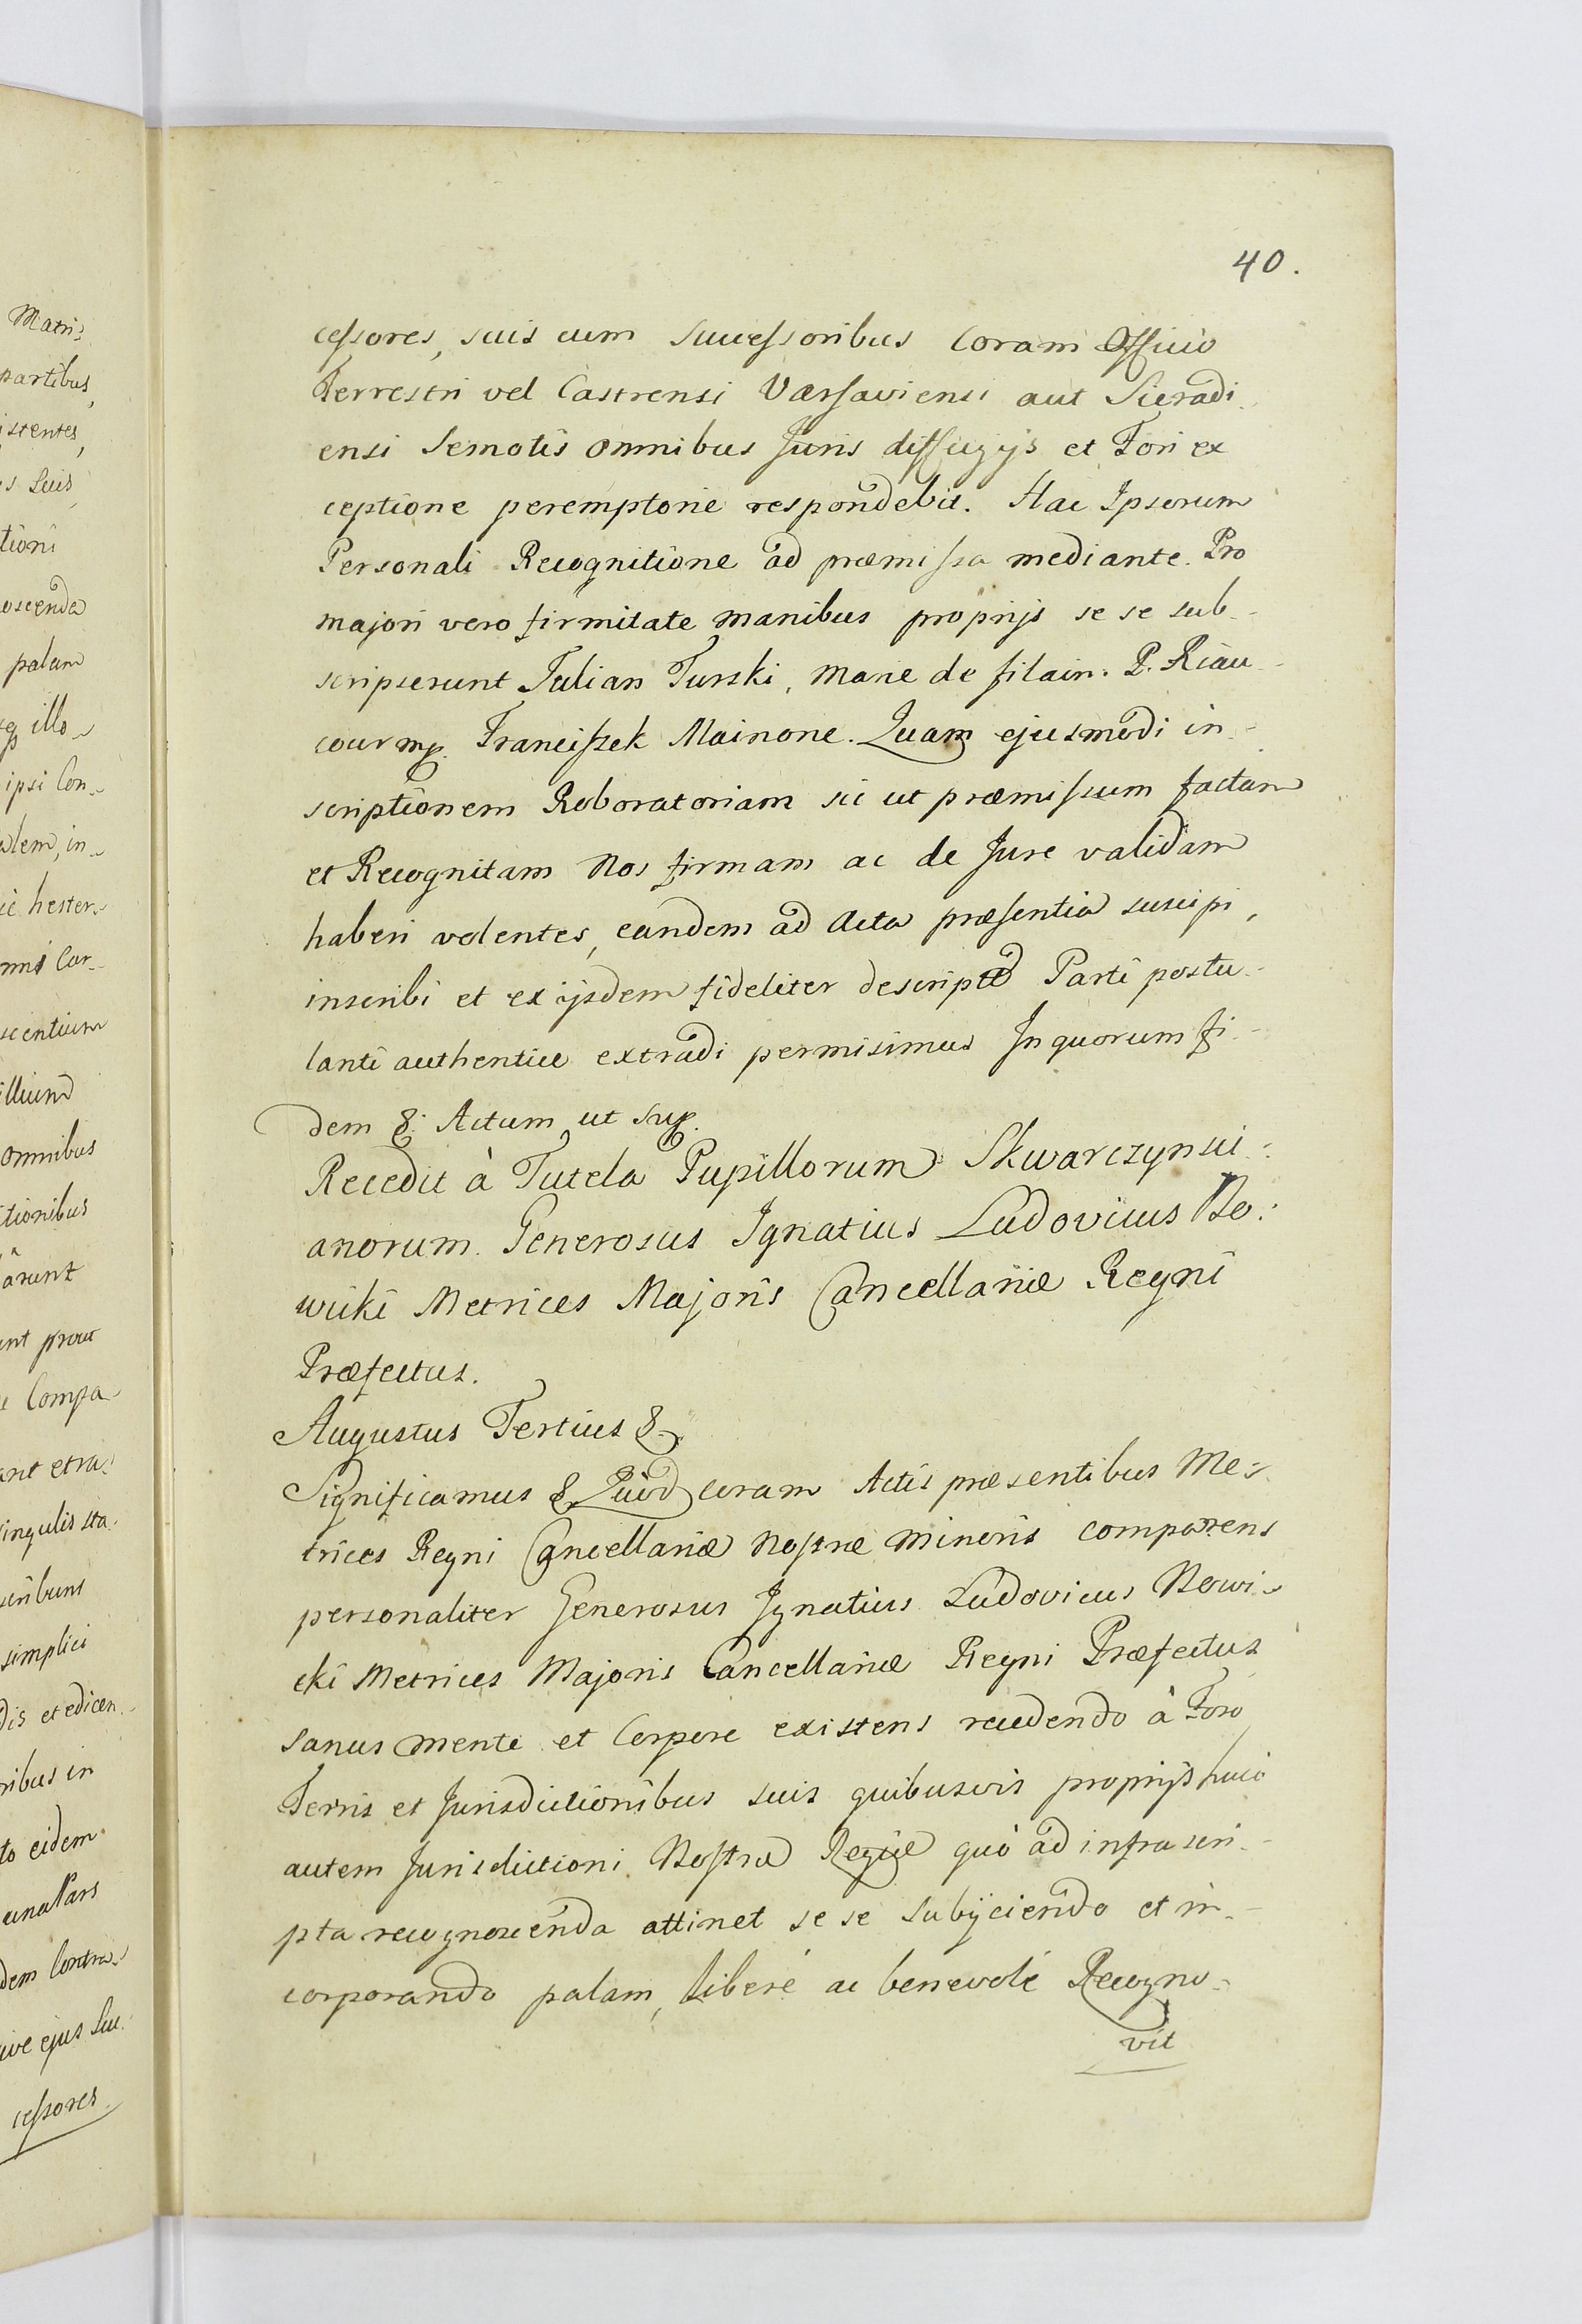 40.
cessores, suis cum Successoribus Coram Officio
Terrestri vel Castrensi Varsaviensi aut Sieradi
ensi Semotis omnibus Juris diffugijs et Fori ex
ceptione peremptorie respondebit. Hac Ipsorum
Personali Recognitione ad præmissa mediante. Pro
majori vero firmitate manibus proprijs se se sub-
scripserunt Julian Turski, Marie de filain. P. Riau-
cour mp. Franciszek Mainone. Quam ejusmodi in-
scriptionem Roboratoriam sic ut præmissum factam
et Recognitam Nos firmam ac de Jure validam
haberi volentes, eandem ad Acta præsentia suscipi,
inscribi et ex ijsdem fideliter descriptã Parti postu-
lanti authentice extradi permisimus In quorum fi-
dem &: Actum ut sup.
Recedit à Tutela Pupillorum Skwarczynsci:
anorum. Generosus Ignatius Ludovicus No:
wicki Metrices Majoris Cancellariæ Regni
Præfectus.
Augustus Tertius &.
Significamus & Quod coram Actis præsentibus Me:
trices Regni Cancellariæ Nostræ Minoris comparens
personaliter Generosus Ignatius Ludovicus Nowi-
cki Metrices Majoris Cancellariæ Regni Præfectus
sanus mente et Corpore existens recedendo à Foro
Terris et Jurisdictionibus suis quibusvis proprijs huic
autem Jurisdictioni Nostræ Regiæ quò ad infra scri-
pta recognoscenda attinet se se subijciendo et in-
corporando palam, liberé ac benevolé Recogno-
vit
Matris
partibus,
istentes,
s suis,
tioni
oscenda
palam
illo-
ipsi Con-
alem, in-
hester-
Cor-
scentium
illium
omnibus
tionibus
arunt
unt prout
Compa
ant etra:
singulis sta
simplici
dis et edicen-
ribus in
to eidem
una Pars
dem Contra-
ive ejus Suc:
cessores.